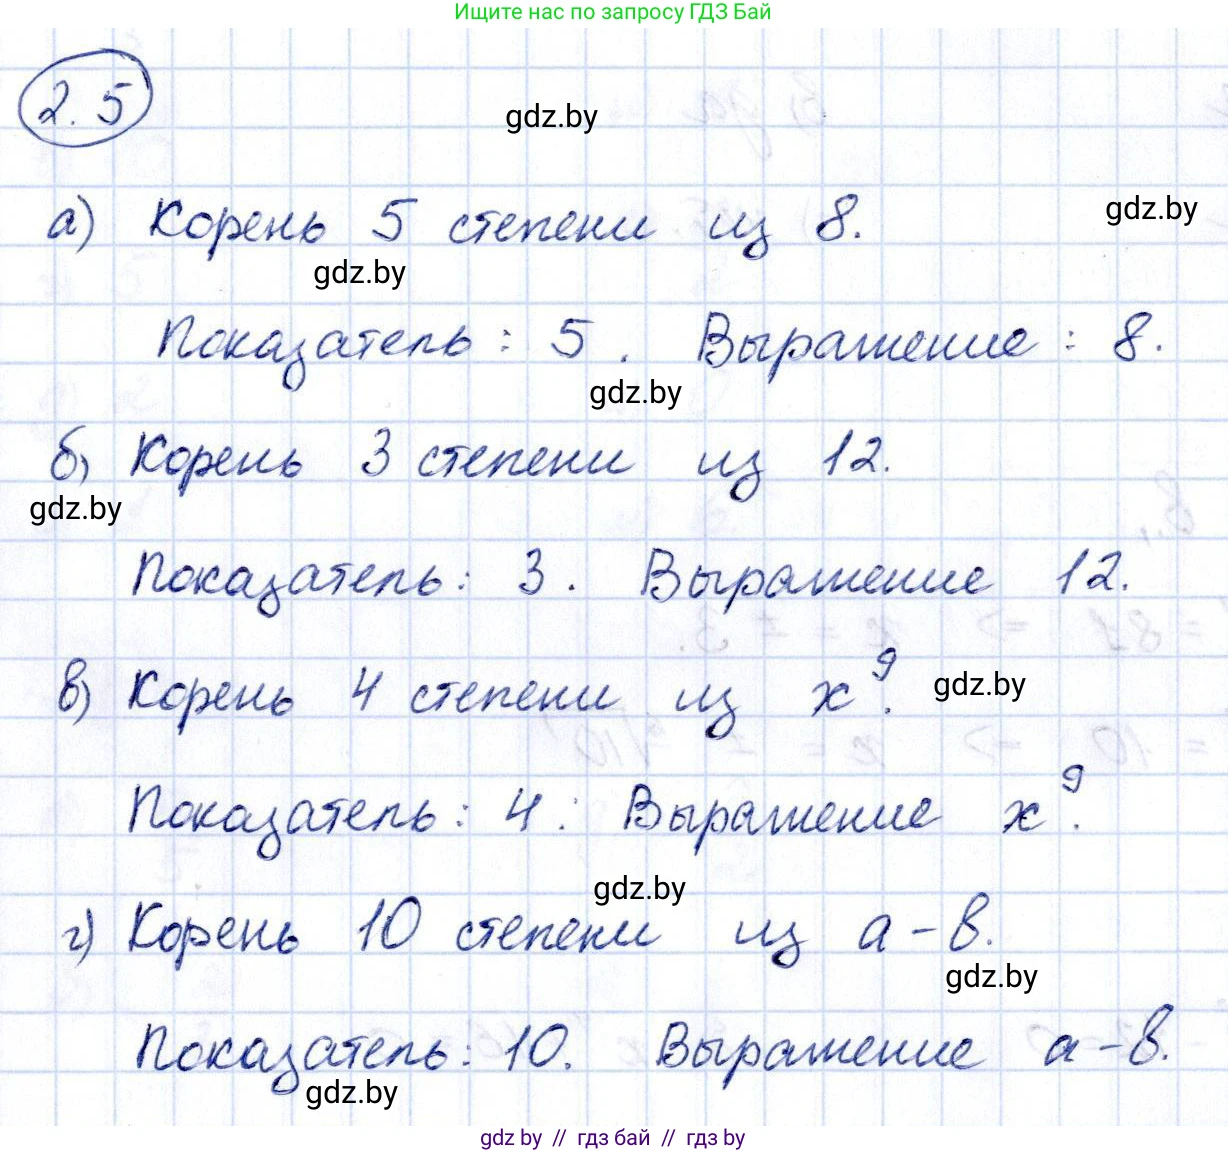 Ищите нас по запросу ГДЗ Бай
2.5
gdz.by
а) Корень 5 степени из 8.
gdz.by
gdz.by
Показатель: 5. Выражение: 8.
gdz.by
б) Корень 3 степени из 12.
gdz.by
Показатель: 3. Выражение 12.
в) Корень 4 степени из x⁹.
gdz.by
Показатель: 4. Выражение x⁹.
gdz.by
г) Корень 10 степени из a-b.
gdz.by
Показатель: 10. Выражение a-b.
gdz.by
gdz.by // гдз бай // гдз by